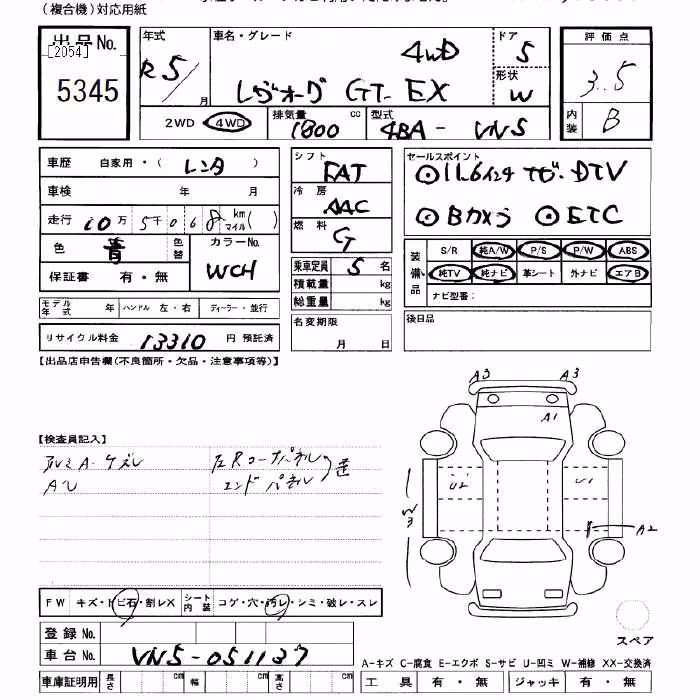 (複合機)対応用紙
出品No.
[2054]
5345
年式 R5/ 月
車名・グレード 4WD
レヴォーグ GT-EX
ドア 5
形状 W
評価点
3.5
内装 B
2WD 4WD
排気量 1800 cc
型式 4BA- VN5
車歴 自家用・(レンタ)
車検 年 月
走行 10万5千068 km マイル( )
色 青 色替
カラーNo. WCH
保証書 有・無
モデル年式 年 ハンドル 左・右 ディーラー・並行
リサイクル料金 13310 円 預託済
シフト FAT
冷房 AAC
燃料 G
乗車定員 5 名
積載量 kg
総重量 kg
名変期限
月 日
セールスポイント
◎11.6インチナビ・DTV
◎Bカメラ ◎ETC
装備品
S/R 純A/W P/S P/W ABS
純TV 純ナビ 革シート 外ナビ エアB
ナビ型番:
後日品
【出品店申告欄(不良箇所・欠品・注意事項等)】
【検査員記入】
アルミA・ケズレ
左Rコーナーパネル
エンドパネル
A3 A3
A1
U2 U1
W3
A2
FW キズ・トビ石・割レX
シート内装 コゲ・穴・汚レ・シミ・破レ・スレ
登録No.
車台No. VN5-051137
車庫証明用 長さ cm 幅 cm 高さ cm
スペア
A-キズ C-腐食 E-エクボ S-サビ U-凹ミ W-補修 XX-交換済
工具 有・無 ジャッキ 有・無